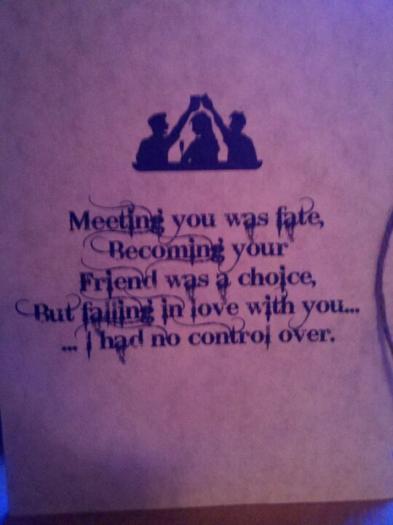 Meeting you was fate,
Becoming your
Friend was a choice,
But falling in love with you...
... I had no control over.